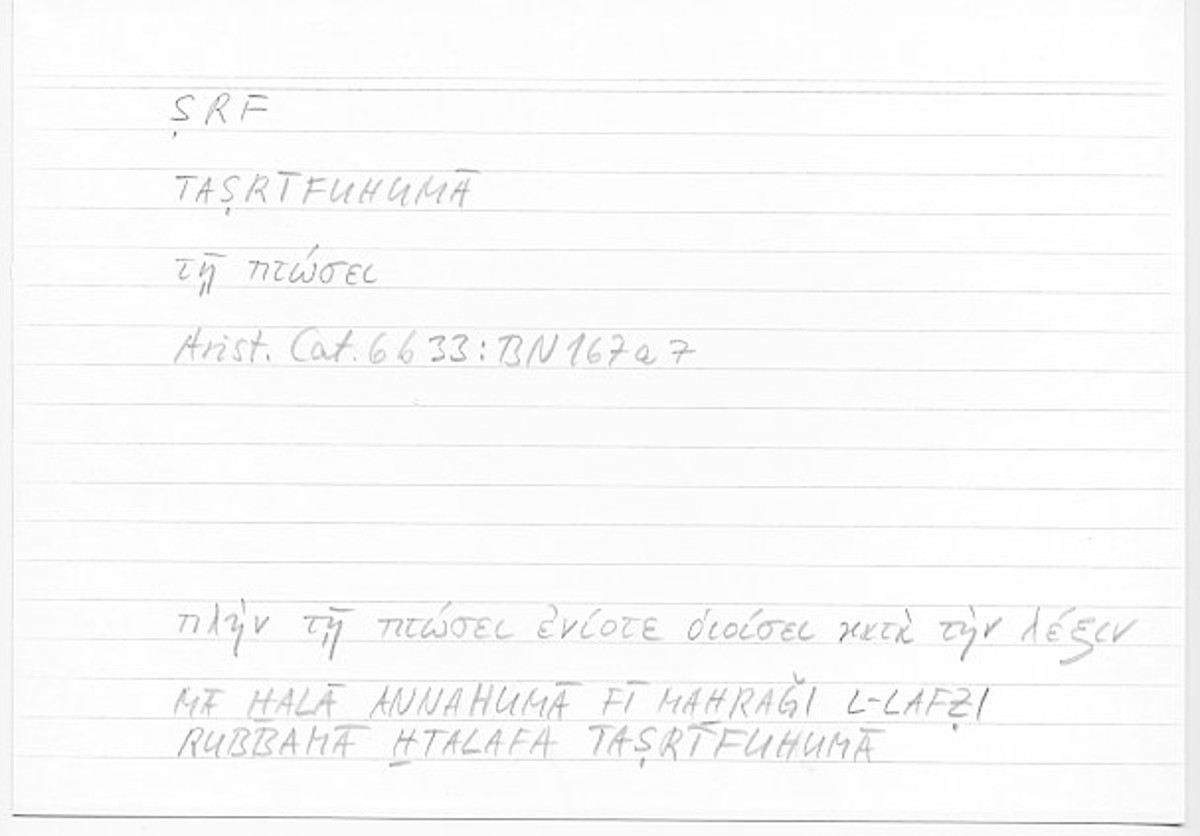 ṢRF
TAṢRĪFUHUMĀ
τῇ πτώσει
Arist. Cat. 6b33: BN 167a7
πλὴν τῇ πτώσει ἐνίοτε διοίσει κατὰ τὴν λέξιν
MĀ ḪALĀ ANNAHUMĀ FĪ MAḪRAǦI L-LAFẒI
RUBBAMĀ ḪTALAFA TAṢRĪFUHUMĀ